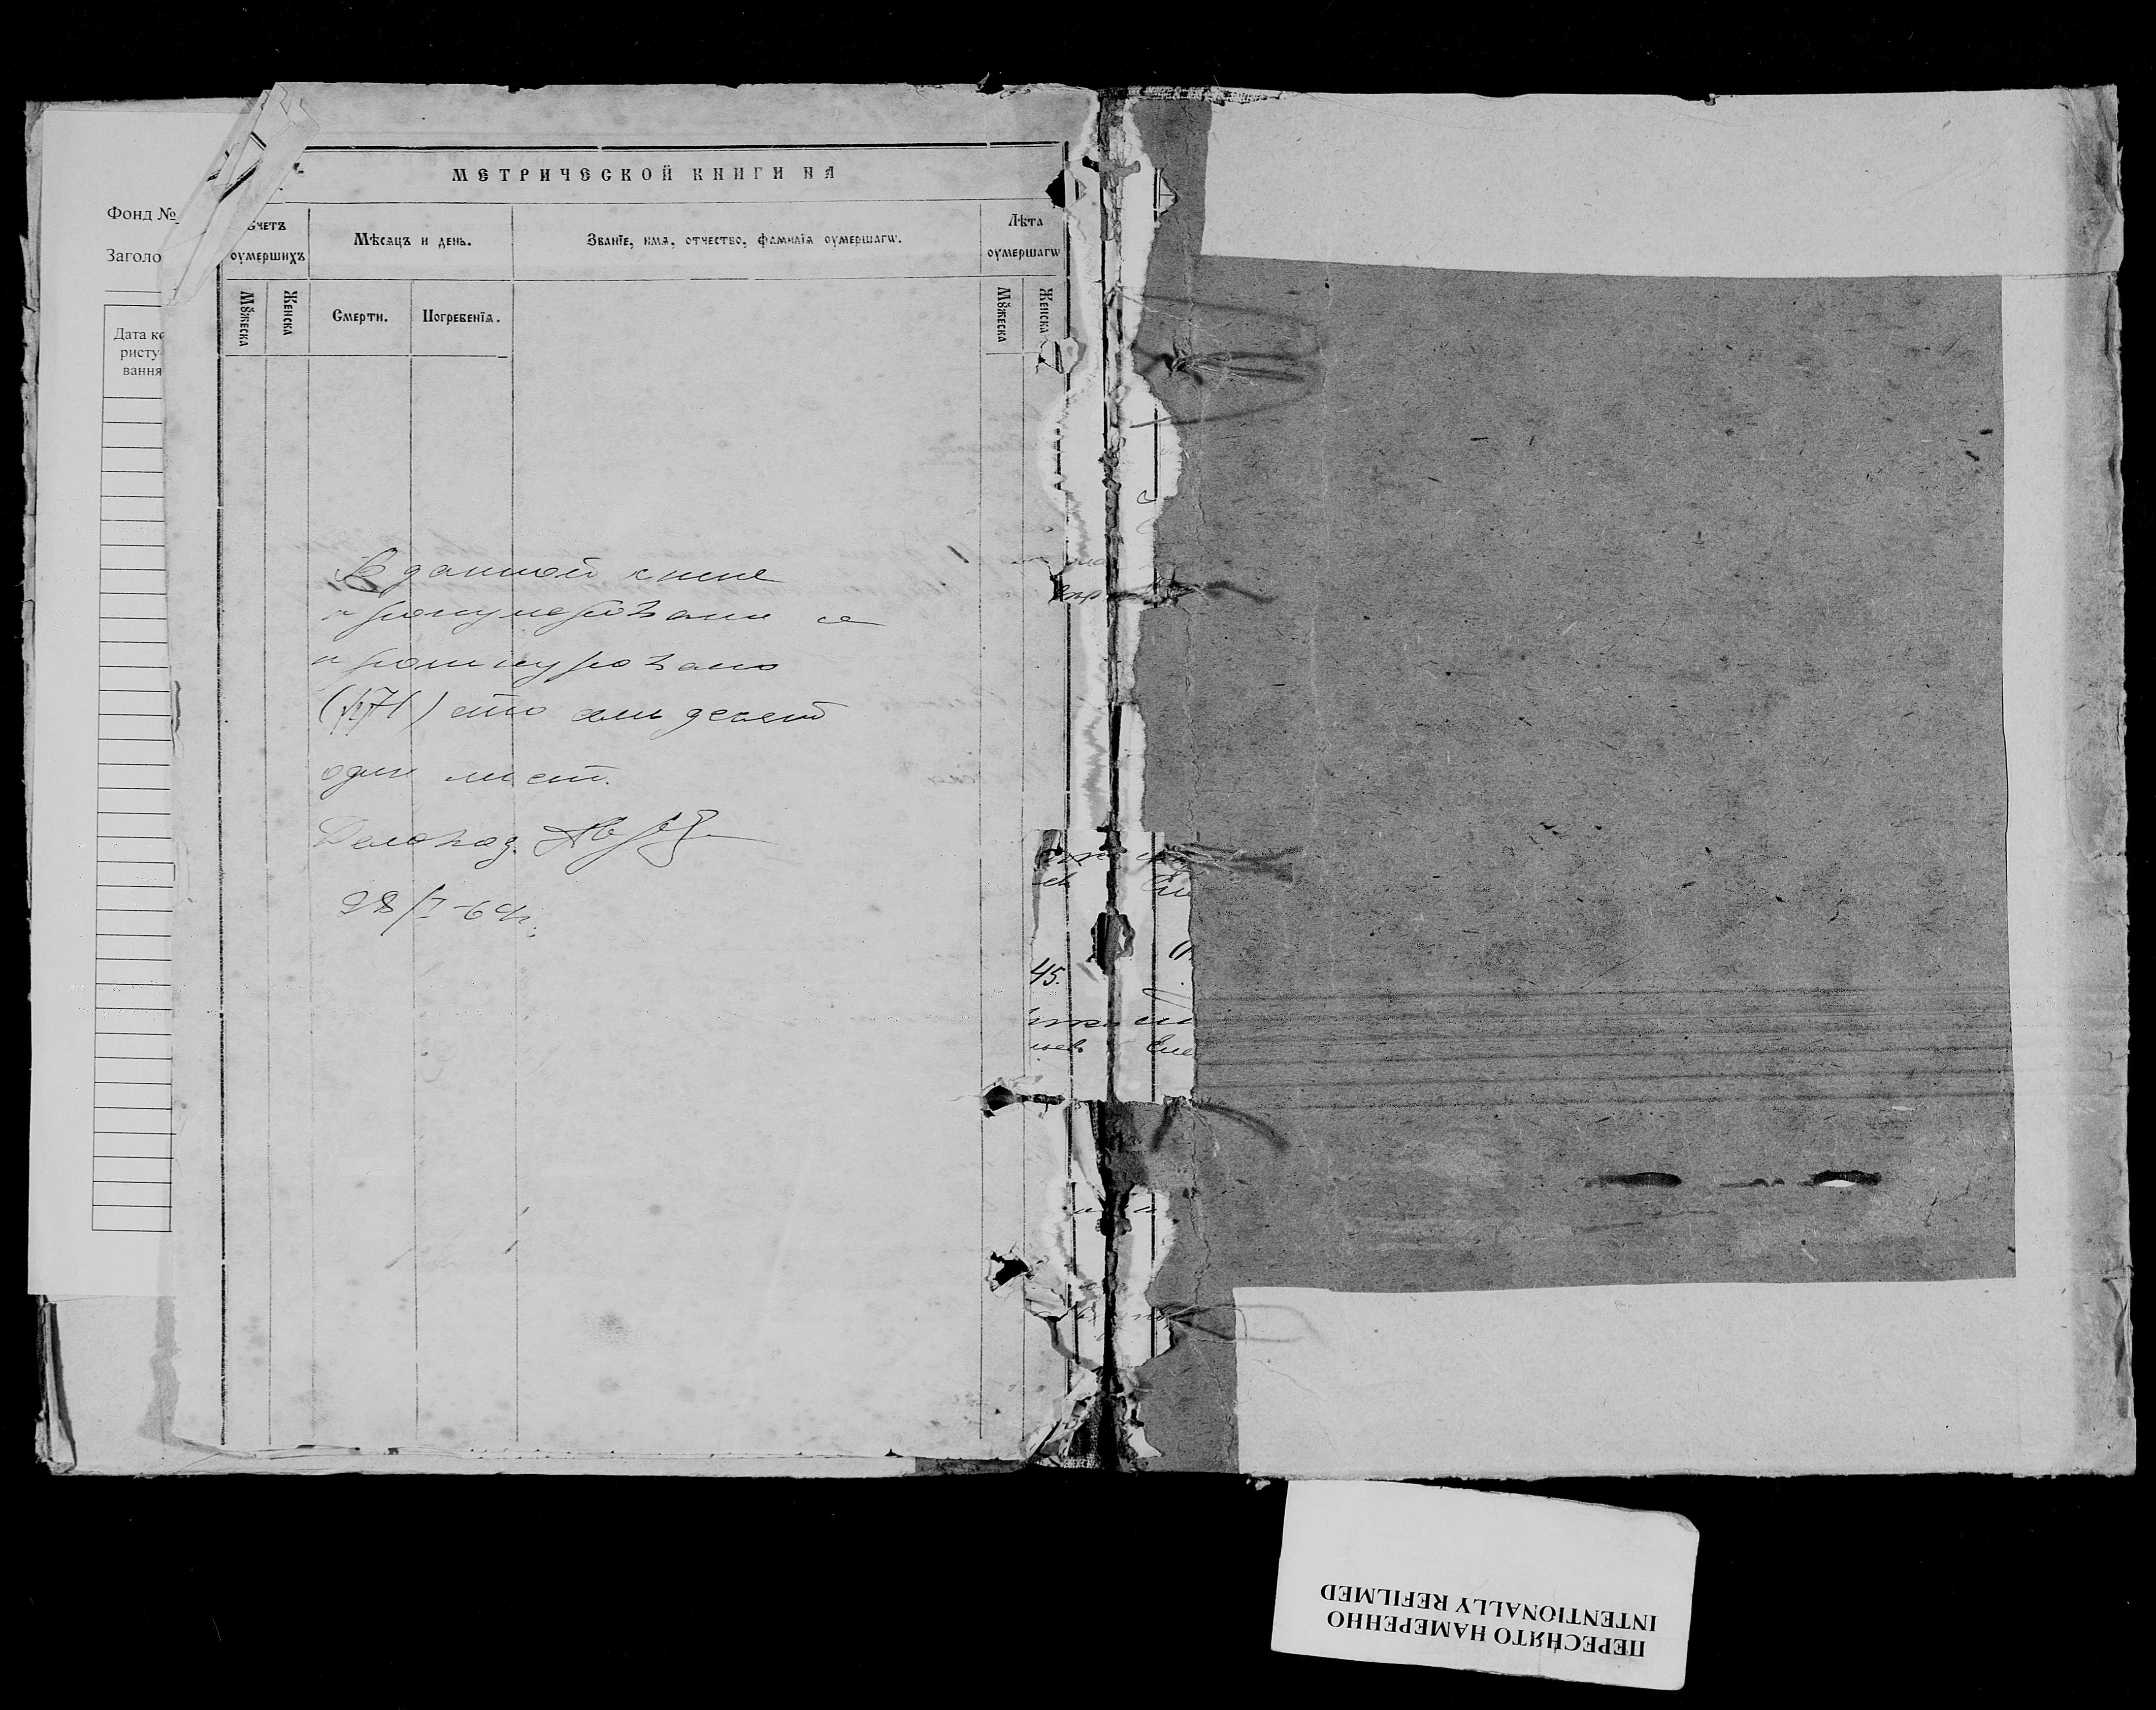 Фонд №
Заголо
Дата ко
ристу
вання
МЕТРИЧЕСКОЙ КНИГИ НА
Счетъ
оумершихъ
Мѣсяцъ и день.
Званїе, имя, отчество, фамилїя оумершагѡ.
Лѣта
оумершагѡ
Мꙋжеска
Женска
Смерти.
Погребенїя.
Мꙋжеска
Женска
В данной книге
пронумеровано и
прошнуровано
(171) сто семьдесят
один лист.
Деловод.
28/I-64г.
45.
ПЕРЕСНЯТО НАМЕРЕННО
INTENTIONALLY REFILMED